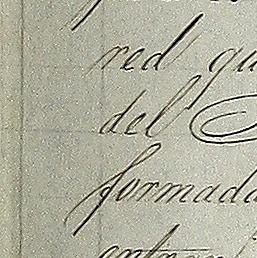 red qu
del
formada